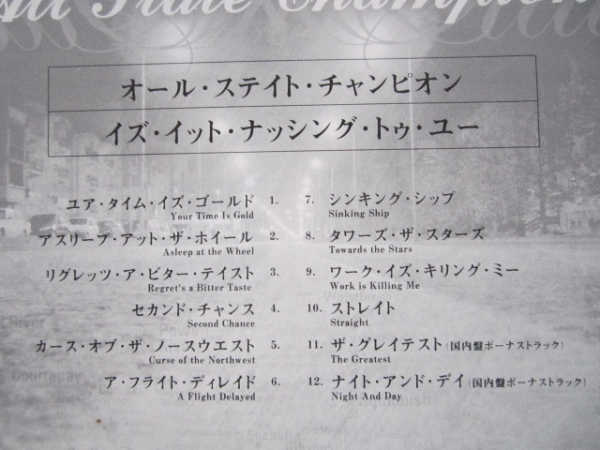 All State Champion
オール・ステイト・チャンピオン
イズ・イット・ナッシング・トゥ・ユー
ユア・タイム・イズ・ゴールド 1.
Your Time Is Gold
アスリープ・アット・ザ・ホイール 2.
Asleep at the Wheel
リグレッツ・ア・ビター・テイスト 3.
Regret's a Bitter Taste
セカンド・チャンス 4.
Second Chance
カース・オブ・ザ・ノースウエスト 5.
Curse of the Northwest
ア・フライト・ディレイド 6.
A Flight Delayed
7. シンキング・シップ
Sinking Ship
8. タワーズ・ザ・スターズ
Towards the Stars
9. ワーク・イズ・キリング・ミー
Work is Killing Me
10. ストレイト
Straight
11. ザ・グレイテスト(国内盤ボーナストラック)
The Greatest
12. ナイト・アンド・デイ(国内盤ボーナストラック)
Night And Day
Courtenay
Squamish